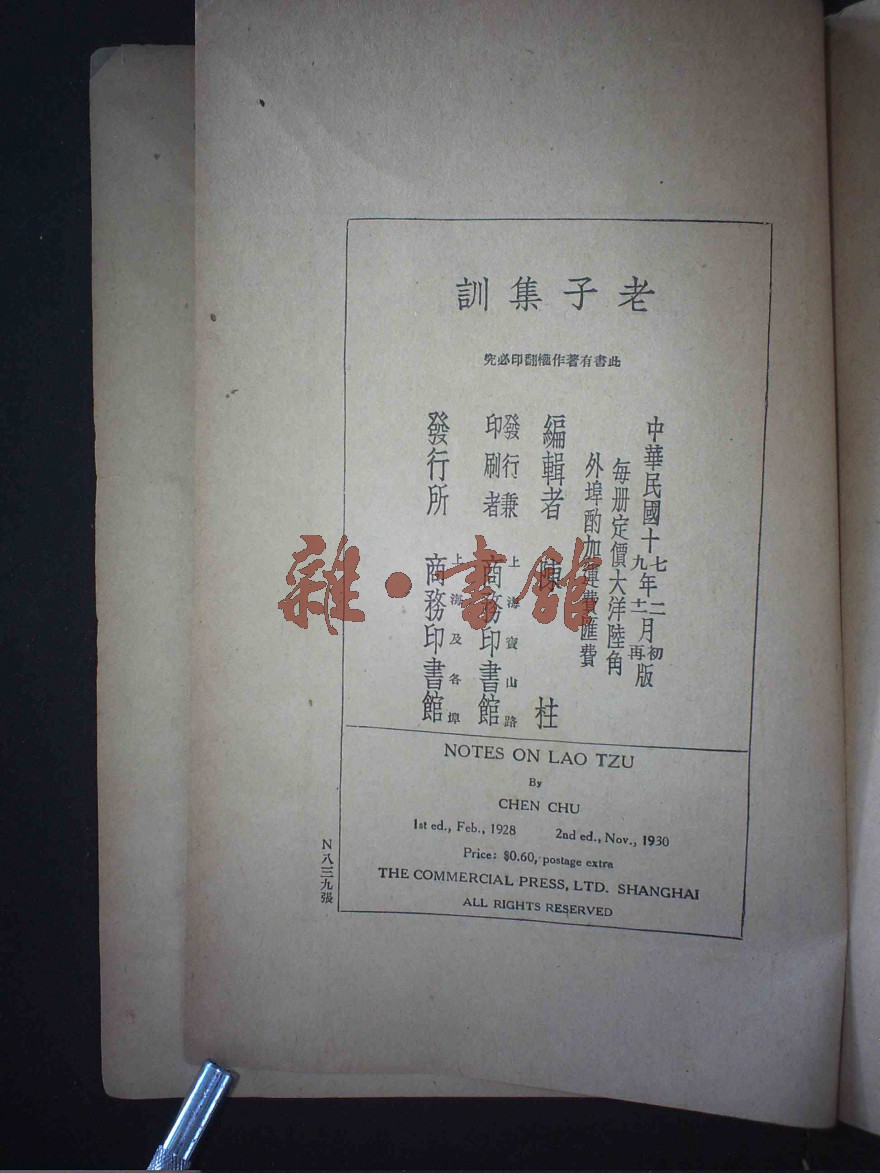 老子集訓
此書有著作權翻印必究
中華民國十七年二月初版
九年十一月再版
每册定價大洋陸角
外埠酌加運費匯費
編輯者 陳柱
發行兼印刷者 上海寶山路 商務印書館
發行所 上海及各埠 商務印書館
NOTES ON LAO TZU
By
CHEN CHU
1st ed., Feb., 1928 2nd ed., Nov., 1930
Price: $0.60, postage extra
THE COMMERCIAL PRESS, LTD. SHANGHAI
ALL RIGHTS RESERVED
N八三九張
雜·書館